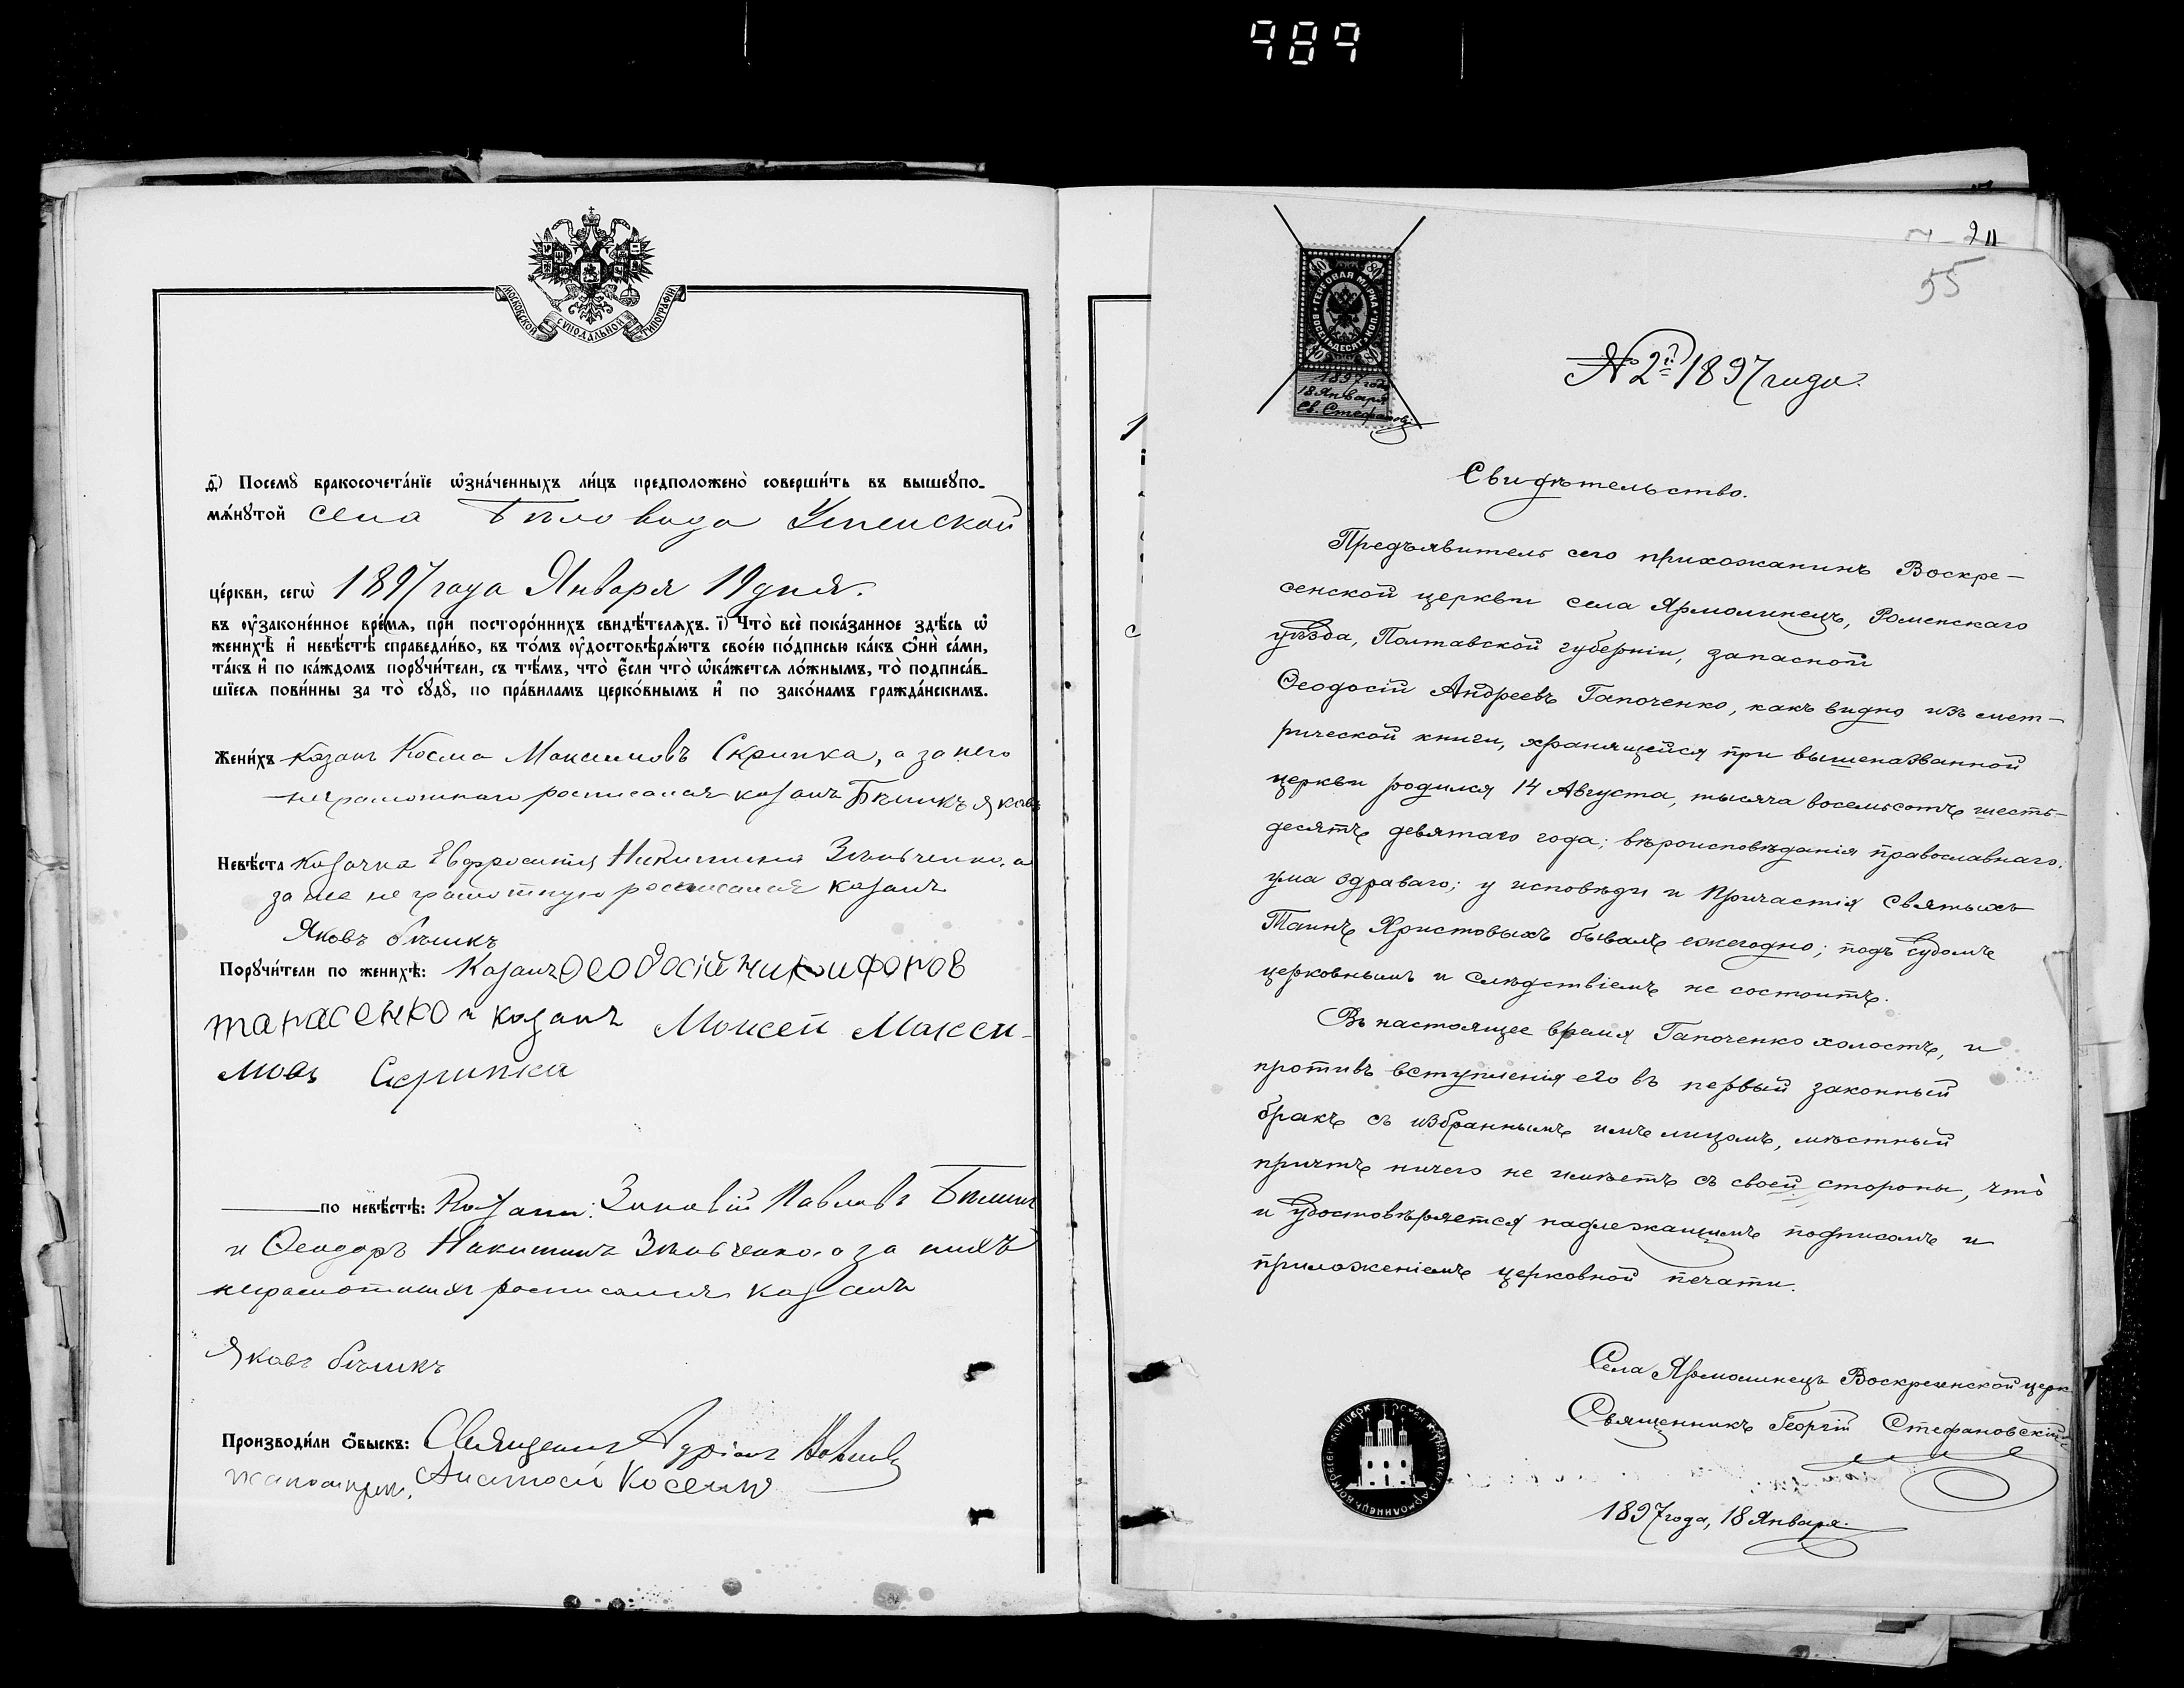 989
МОСКОВСКОЙ СѴНОДАЛЬНОЙ ТИПОГРАФІИ
д҃) Посемꙋ̀ бракосочета́нїе ѡ҆зна́ченныхъ ли́цъ предположено̀ соверши́ть въ вышеꙋпо-
мѧ́нꙋтой села Бѣловода Успенской
це́ркви, сегѡ̀ 1897 года Января 19 дня.
въ ᲂу҆зако́не́нное вре́мѧ, прѝ посторо́ннихъ свидѣ́телѧхъ. і҃) Что̀ всѐ пока́занное здѣ́сь ѡ҆
женихѣ̀ и҆ невѣ́стѣ справедли́во, въ то́мъ ᲂу҆достовѣрѧ́ютъ свое́ю по́дписью ка́къ ѻ҆нѝ са́ми,
та́къ и҆ по ка́ждомъ порꙋчи́тели, съ тѣ́мъ, что̀ є҆́сли что̀ ѡ҆ка́жетсѧ ло́жнымъ, то̀ подписа́в-
шїесѧ пови́нны за то̀ сꙋдꙋ̀, по пра́виламъ церко́внымъ и҆ по зако́намъ гражда́нскимъ.
Жени́хъ казакъ Косма Максимовъ Скрипка, а за него
неграмотнаго росписался козакъ Бѣликъ Яковъ
Невѣ́ста козачка Евфросинія Никитина Зѣнченко, а
за нее не грамотную росписался козакъ
Яковъ бѣликъ
Порꙋчи́тели по женихѣ̀: Козакъ Ѳеодосій никифоров
тарасенко и козакъ Моисей Макси-
мовъ Скрипка
по невѣ́стѣ: Козаки: Зиновій Павловъ Бѣликъ
и Ѳеодоръ Никитинъ Зѣнченко, а за нихъ
неграмотныхъ росписался козакъ
Яковъ бѣликъ
Производи́ли ѻ҆́быскъ: Священникъ Адріанъ
Косенко
55
№ 2й 1897 года.
ГЕРБОВАЯ МАРКА
ВОСЕМЬДЕСЯТ КОП.
80 80
1897 года
18 Января
Св. Стефановскій
Свидѣтельство.
Предъявитель сего прихожанинъ Воскре-
сенской церкви села Ярмолинецъ, Роменскаго
уѣзда, Полтавской губерніи, запасной
Ѳеодосій Андреевъ Гапоченко, какъ видно изъ мет-
рической книги, хранящейся при вышеназванной
церкви родился 14 Августа, тысяча восемьсотъ шесть-
десятъ девятаго года; вѣроисповѣданія православнаго;
ума здраваго; у исповѣди и Причастія Святыхъ
Таинъ Христовыхъ бывалъ ежегодно; подъ судомъ
церковнымъ и слѣдствіемъ не состоитъ.
Въ настоящее время Гапоченко холостъ, и
противъ вступленія его въ первый законный
бракъ съ избраннымъ имъ лицомъ, мѣстный
причтъ ничего не имѣетъ съ своей стороны, что
и удостовѣряется надлежащимъ подписомъ и
приложеніемъ церковной печати.
Села Ярмолинецъ Воскресенской церк.
Священникъ Георгій Стефановскій
1897 года, 18 Января.